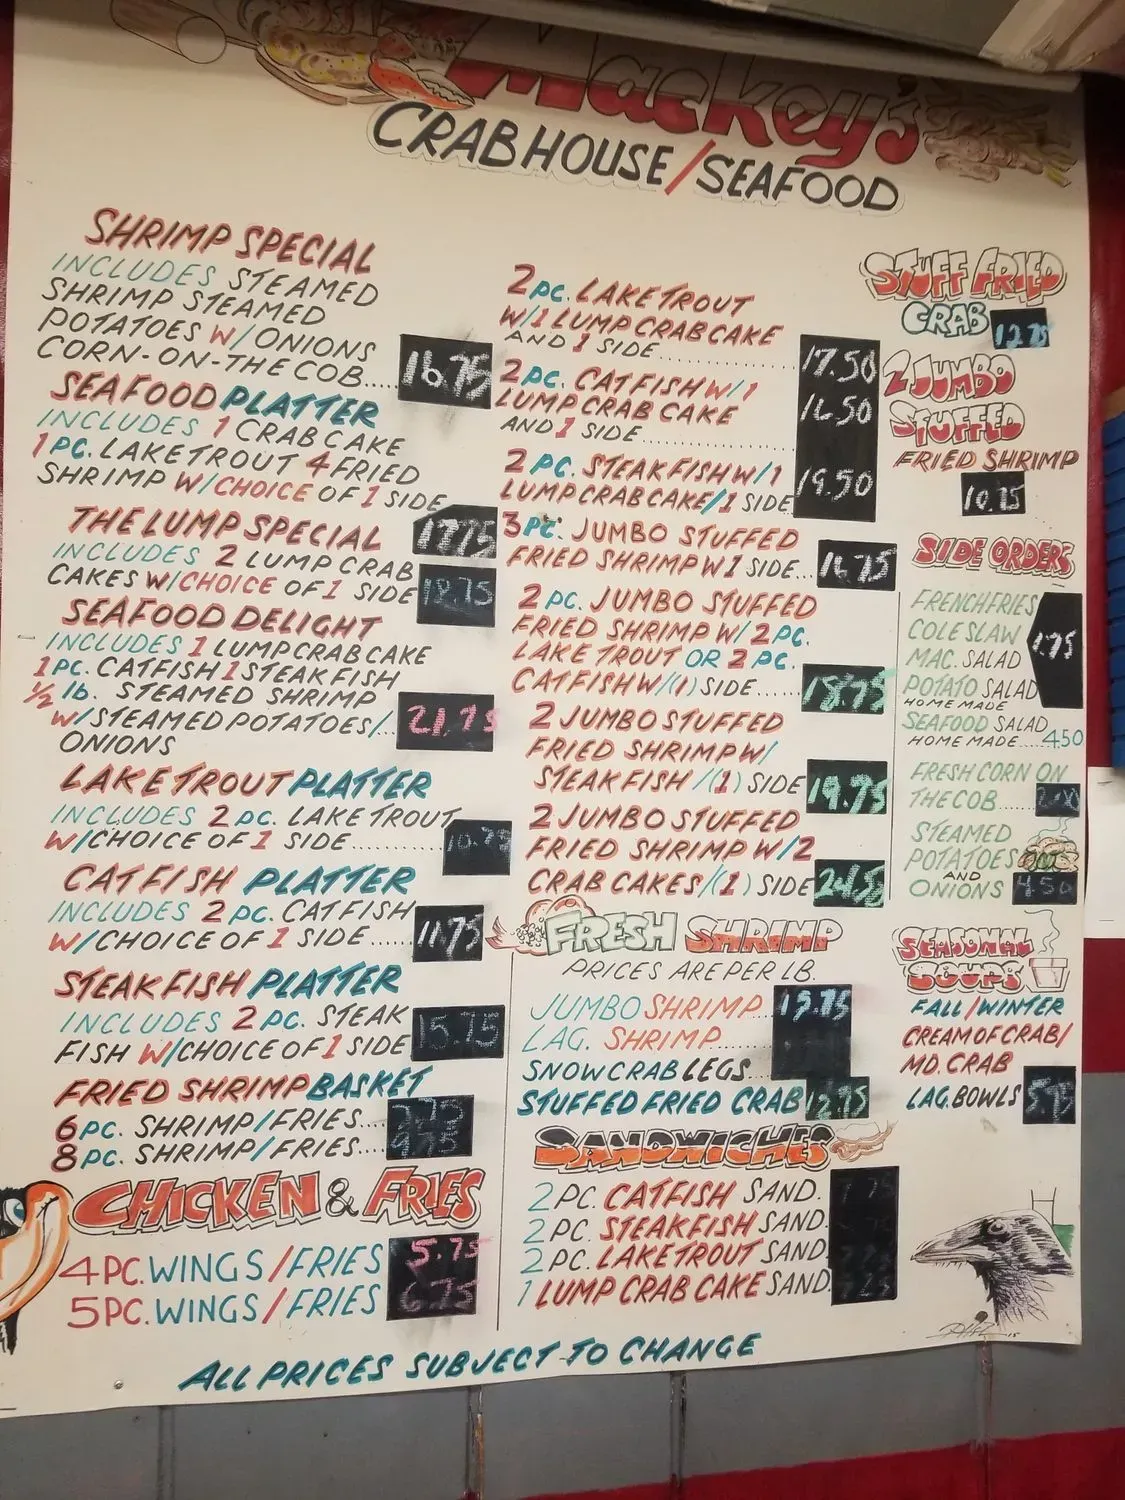 Mackey's
CRAB HOUSE/SEAFOOD
SHRIMP SPECIAL
INCLUDES STEAMED
SHRIMP STEAMED
POTATOES W/ONIONS
CORN-ON-THE COB.... 16.75
SEAFOOD PLATTER
INCLUDES 1 CRAB CAKE
1PC. LAKE TROUT 4 FRIED
SHRIMP W/CHOICE OF 1 SIDE
17.75
THE LUMP SPECIAL
INCLUDES 2 LUMP CRAB
CAKES W/CHOICE OF 1 SIDE 18.75
SEAFOOD DELIGHT
INCLUDES 1 LUMP CRAB CAKE
1PC. CATFISH 1 STEAK FISH
1/2 lb. STEAMED SHRIMP
W/STEAMED POTATOES/.. 21.75
ONIONS
LAKE TROUT PLATTER
INCLUDES 2 PC. LAKE TROUT
W/CHOICE OF 1 SIDE ........ 10.75
CATFISH PLATTER
INCLUDES 2 PC. CATFISH
W/CHOICE OF 1 SIDE..... 11.75
STEAK FISH PLATTER
INCLUDES 2 PC. STEAK
FISH W/CHOICE OF 1 SIDE 15.75
FRIED SHRIMP BASKET
6 PC. SHRIMP/FRIES...
8 PC. SHRIMP/FRIES.... 9.75
CHICKEN & FRIES
4 PC. WINGS/FRIES 5.75
5 PC. WINGS/FRIES 6.75
2 PC. LAKE TROUT
W/1 LUMP CRAB CAKE
AND 1 SIDE.............. 17.50
2 PC. CATFISH W/1
LUMP CRAB CAKE 16.50
AND 1 SIDE..............
2 PC. STEAK FISH W/1
LUMP CRAB CAKE/1 SIDE 19.50
3 PC. JUMBO STUFFED
FRIED SHRIMP W 1 SIDE... 16.75
2 PC. JUMBO STUFFED
FRIED SHRIMP W/ 2 PC.
LAKE TROUT OR 2 PC.
CATFISH W/(1) SIDE...... 18.75
2 JUMBO STUFFED
FRIED SHRIMP W/
STEAK FISH /(1) SIDE 19.75
2 JUMBO STUFFED
FRIED SHRIMP W/2
CRAB CAKES/(1) SIDE 24.50
FRESH SHRIMP
PRICES ARE PER LB.
JUMBO SHRIMP 15.75
LAG. SHRIMP........
SNOW CRAB LEGS...
STUFFED FRIED CRAB 12.75
SANDWICHES
2 PC. CATFISH SAND. 7.75
2 PC. STEAKFISH SAND.
2 PC. LAKE TROUT SAND.
1 LUMP CRAB CAKE SAND.
STUFF FRIED
CRAB 12.75
2 JUMBO
STUFFED
FRIED SHRIMP
10.75
SIDE ORDERS
FRENCH FRIES
COLE SLAW 1.75
MAC. SALAD
POTATO SALAD
HOME MADE
SEAFOOD SALAD
HOME MADE....4.50
FRESH CORN ON
THE COB....... 2.00
STEAMED
POTATOES
AND
ONIONS 4.50
SEASONAL
SOUPS
FALL/WINTER
CREAM OF CRAB/
MD. CRAB
LAG. BOWLS 5.75
ALL PRICES SUBJECT TO CHANGE